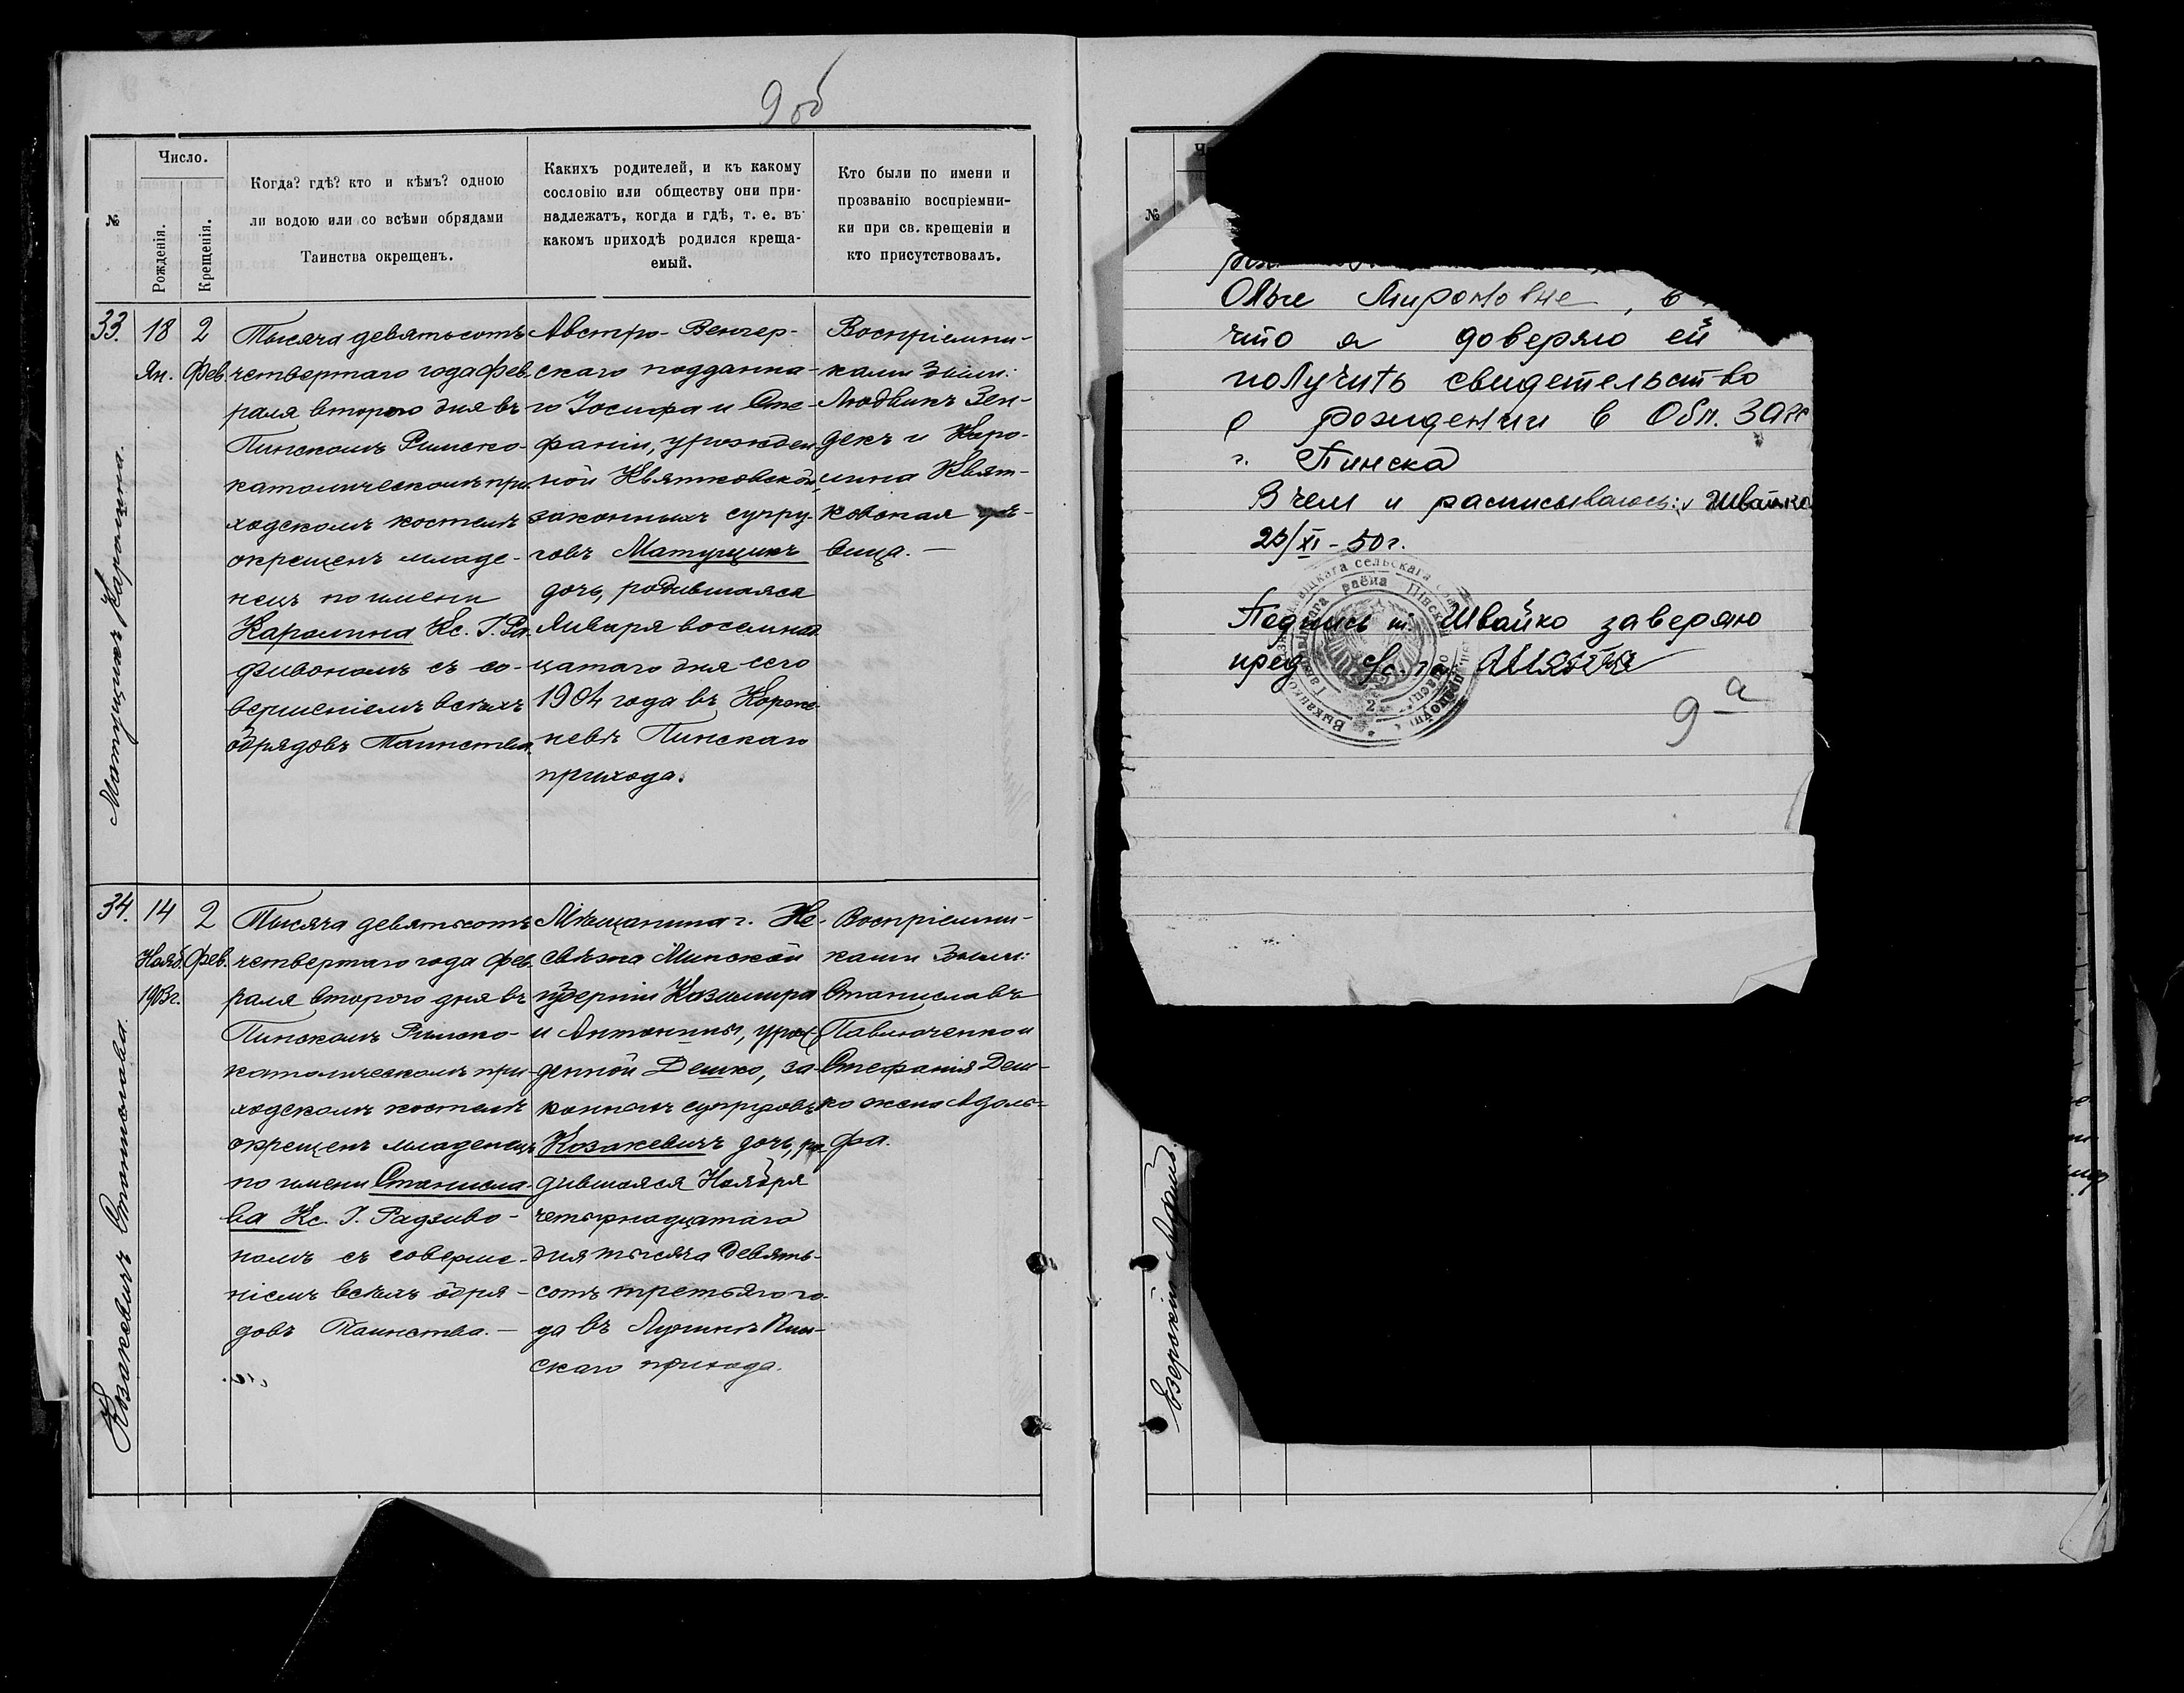 9 об
№
Число.
Рожденія.
Крещенія.
Когда? гдѣ? кто и кѣмъ? одною
ли водою или со всѣми обрядами
Таинства окрещенъ.
Какихъ родителей, и къ какому
сословію или обществу они при-
надлежатъ, когда и гдѣ, т. е. въ
какомъ приходѣ родился креща-
емый.
Кто были по имени и
прозванію воспріемни-
ки при св. крещеніи и
кто присутствовалъ.
Матущикъ Каролина.
33.
18
Ян.
2
Фев.
Тысяча девятьсотъ
четвертаго года фев-
раля второго дня въ
Пинскомъ Римско-
католическомъ при-
ходскомъ костелѣ
окрещенъ младе-
нецъ по имени
Каролина Кс. І. Ра-
дзивономъ съ со-
вершеніемъ всѣхъ
обрядовъ Таинства.
Австро-Венгер-
скаго подданна-
го Іосифа и Сте-
фаніи, урожден-
ной Квятковской,
законныхъ супру-
говъ Матущикъ
дочь, родившаяся
Января восемнад-
цатаго дня сего
1904 года въ
Пинскаго
прихода.
Воспріемни-
ками были:
Людвикъ Зен-
декъ и Каро-
лина Квят-
ковская дѣ-
вица. —
Козакевичъ Станислава.
34.
14
Нояб.
1903г.
2
Фев.
Тысяча девятьсотъ
четвертаго года фев-
раля второго дня въ
Пинскомъ Римско-
католическомъ при-
ходскомъ костелѣ
окрещенъ младенецъ
по имени Станисла-
ва Кс. І. Радзиво-
номъ съ соверше-
ніемъ всѣхъ обря-
довъ Таинства. —
Мѣщанина г. Не-
свѣжа Минской
губерніи Казимира
и Антонины, урож-
денной Дешко, за-
конныхъ супруговъ
Козакевичъ дочь, ро-
дившаяся Ноября
четырнадцатаго
дня тысяча девять-
сотъ третьяго го-
да въ Лужинѣ Пин-
скаго прихода.
Воспріемни-
ками были:
Станиславъ
Павлюченко и
Стефанія Деш-
ко жена Адоль-
фа.
№
Ольге Мироновне, в
что я доверяю ей
получить свидетельство
о рождении в Обл. Загс
г. Пинска
В чем и расписываюсь: Швайко
25/XI - 50 г.
Подпись т. Швайко заверяю
пред. с/с
9 а
Езерскій Адамъ.